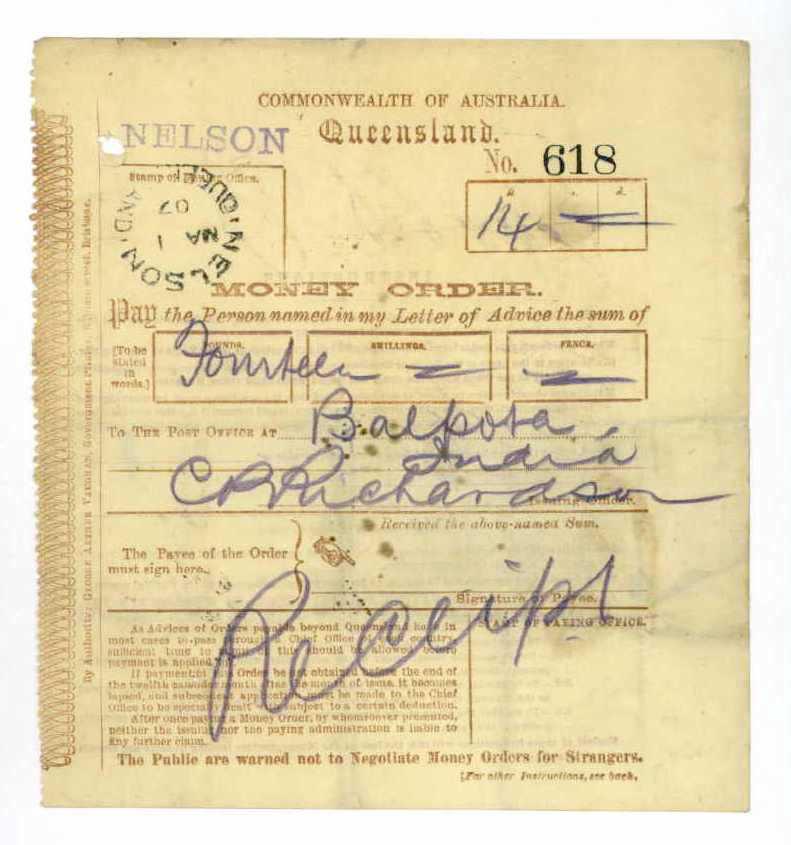 COMMONWEALTH OF AUSTRALIA.
NELSON Queensland.
No. 618
Stamp of Issuing Office.
NELSON QUEENSLAND
1 JA 07
£ s. d.
14 - -
MONEY ORDER.
Pay the Person named in my Letter of Advice the sum of
[To be stated in words.]
POUNDS. SHILLINGS. PENCE.
Fourteen - -
TO THE POST OFFICE AT Balpota
India
C R Richardson
Issuing Officer.
Received the above-named Sum.
The Payee of the Order
must sign here.
Signature of Payee.
Receipt
STAMP OF PAYING OFFICE.
As Advices of Orders payable beyond Queensland have in
most cases to pass through Chief Office of the country
sufficient time to this should be allowed before
payment is applied
If payment of Order be not obtained before the end of
the twelfth calendar month after the month of issue, it becomes
lapsed, and subsequent application must be made to the Chief
Office to be specially dealt subject to a certain deduction.
After once paying a Money Order, by whomsoever presented,
neither the issuing nor the paying administration is liable to
any further claim.
The Public are warned not to Negotiate Money Orders for Strangers.
[For other Instructions, see back.
By Authority: GEORGE ARTHUR VAUGHAN, Government Printer, William street, Brisbane.